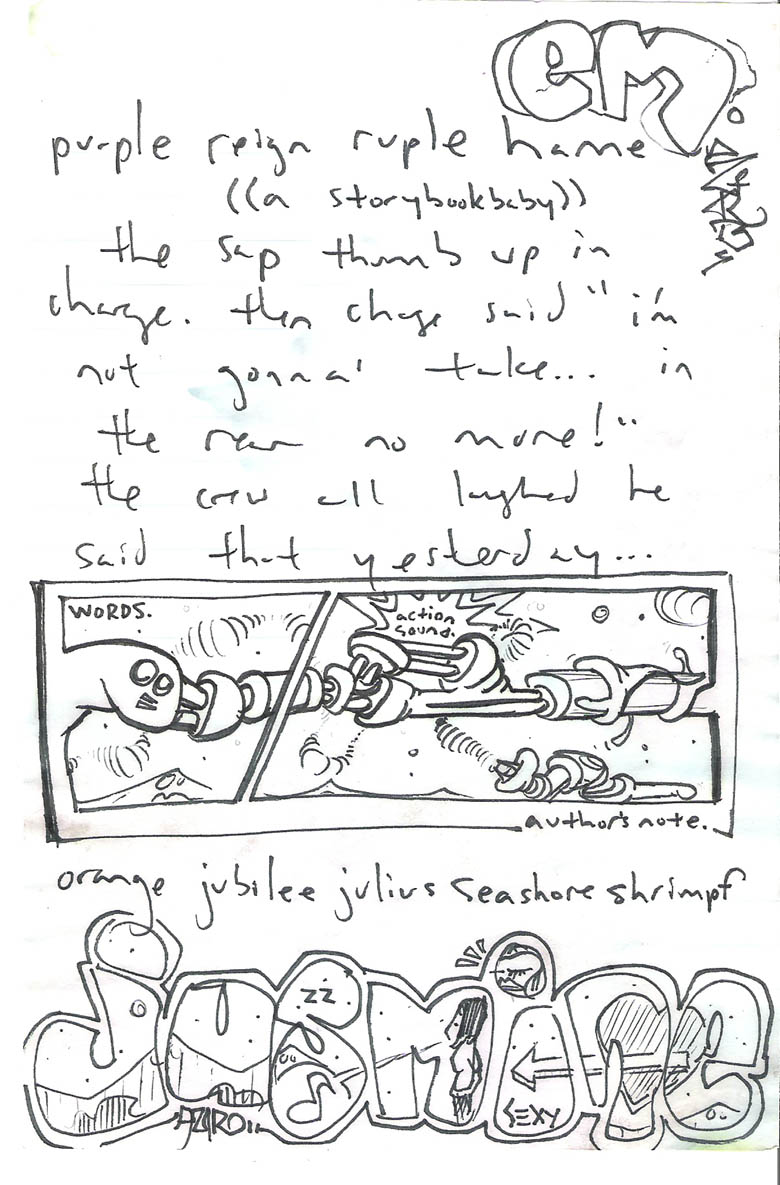 em
purple reign ruple hame
((a storybookbaby))
the sap thumb up in
charge. then chage said "i'm
not gonna' take... in
the rear no more!"
the crew all laughed he
said that yesterday...
WORDS.
action
sound.
author's note.
orange jubilee julius seashore shrimpf
jasmine
zz
SEXY